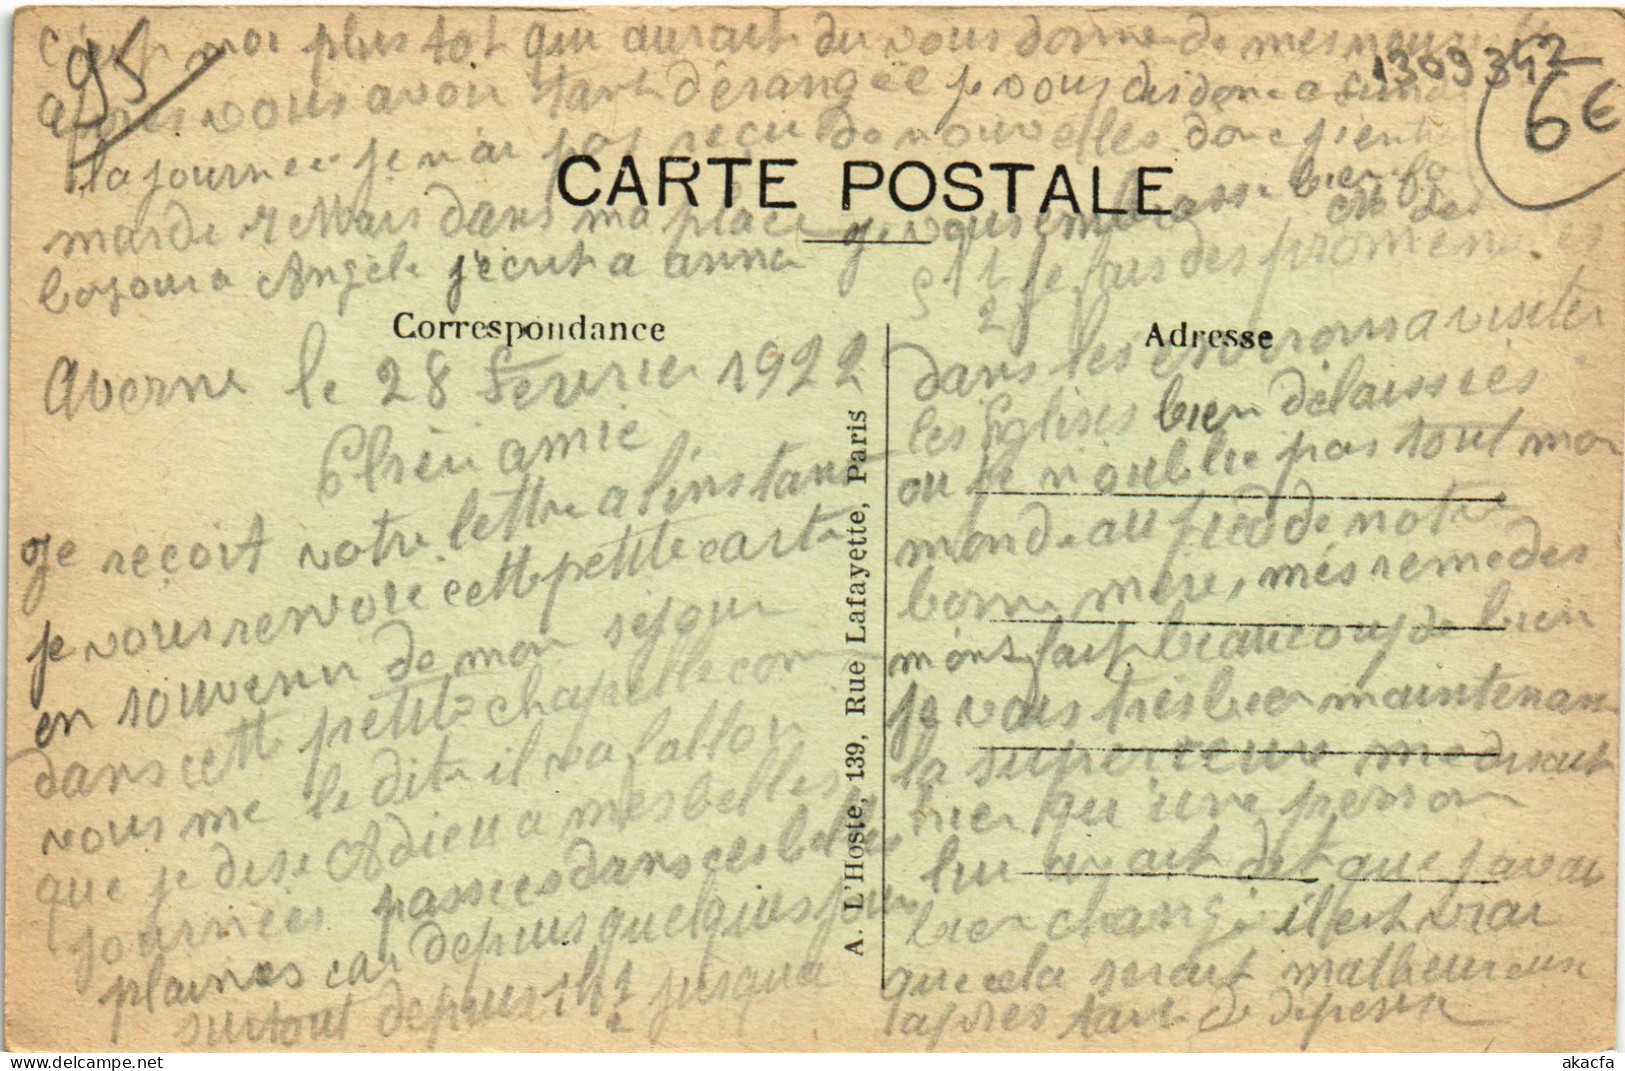 c'est moi plus tot qui aurait du vous donne de mes
95
1309342
6€
apres vous avoir tant dérangée je vous dis donc a
la journee je n'ai pas reçu de nouvelles donc
CARTE POSTALE
mais dans ma place je vous embrasse bien
bojour a Angèle j'ecrit a anna
Correspondance
Averne le 28 Fevrier 1922
Cherie amie
Je reçoit votre lettre a l'instant
je vous renvoie cette petite carte
en souvenir de mon sejour
dans cette petite chapelle com
vous me le dite il va falloir
que je dise Adieu a mes belles
journées passées dans ces belles
plaines car depuis quelques jour
surtout depuis 1h½ jusqua
A. L'Hoste, 139, Rue Lafayette, Paris
Adresse
je fais des promenades
dans les environs a visiter
les Eglises bien délaissées
ou je n'oublie pas tout mon
monde au pied de notre
bonne mere, més remedes
mons fait beaucoup de bien
je vais tres bien maintenant
la superieure me disait
hier qu'une person
lui avait dit que j'avai
bien changé il est vrai
que cela serait malheureux
apres tant de depense